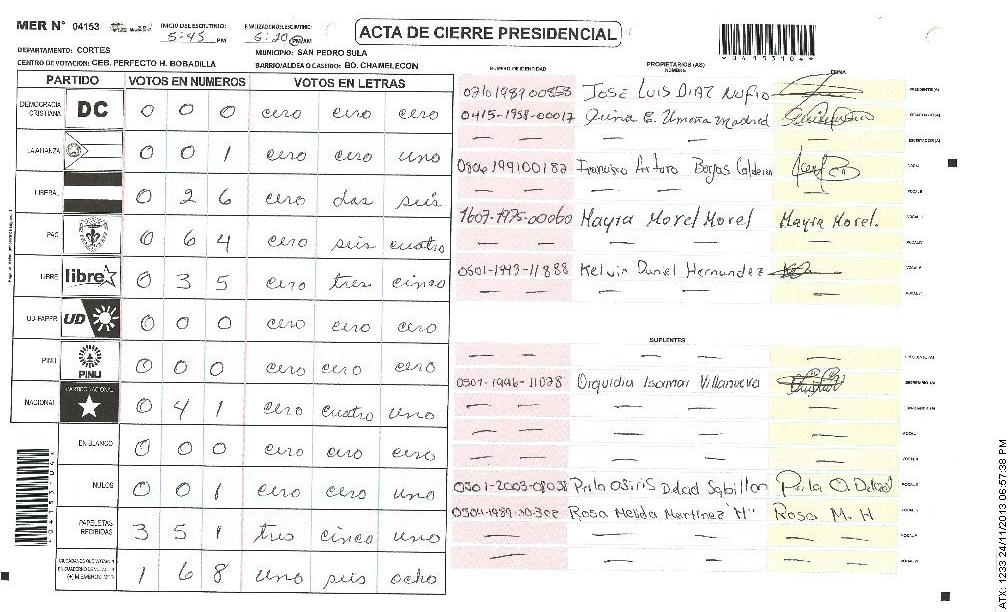 MER N° 04153
INICIO DEL ESCRUTINIO: 5:45 PM
FINALIZACION DEL ESCRUTINIO: 6:20 PM AM
ACTA DE CIERRE PRESIDENCIAL
*04153104*
DEPARTAMENTO: CORTES
MUNICIPIO: SAN PEDRO SULA
CENTRO DE VOTACION: CEB. PERFECTO H. BOBADILLA
BARRIO/ALDEA O CASERIO: BO. CHAMELECON
PARTIDO VOTOS EN NUMEROS VOTOS EN LETRAS
DEMOCRACIA CRISTIANA DC 0 0 0 cero cero cero
LA ALIANZA 0 0 1 cero cero uno
LIBERAL 0 2 6 cero dos seis
PAC 0 6 4 cero seis cuatro
LIBRE libre 0 3 5 cero tres cinco
UD-FAPER UD 0 0 0 cero cero cero
PINU PINU 0 0 0 cero cero cero
NACIONAL PARTIDO NACIONAL 0 4 1 cero cuatro uno
EN BLANCO 0 0 0 cero cero cero
NULOS 0 0 1 cero cero uno
PAPELETAS RECIBIDAS 3 5 1 tres cinco uno
CIUDADANOS QUE VOTARON EN CUADERNO DE VOTACION (+) MIEMBROS MER 1 6 8 uno seis ocho
*04153104*
NUMERO DE IDENTIDAD PROPIETARIOS (AS) NOMBRE FIRMA
JOSE LUIS DIAZ Nufio PRESIDENTE(A)
0415-1958-00017 SECRETARIO(A)
ESCRUTADOR(A)
Francisco Arturo Borjas VOCAL I
VOCAL II
1607-1975-00060 Mayra Morel Morel Mayra Morel. VOCAL III
VOCAL IV
Kelvin Daniel Hernandez VOCAL V
SUPLENTES
PRESIDENTE(A)
0501-1996-11078 Orquidia Isamar Villanueva SECRETARIO(A)
ESCRUTADOR(A)
VOCAL I
VOCAL II
Osiris VOCAL III
Rosa Melida Martinez H Rosa M. H
ATX: 1233 24/11/2013 06:57:38 PM